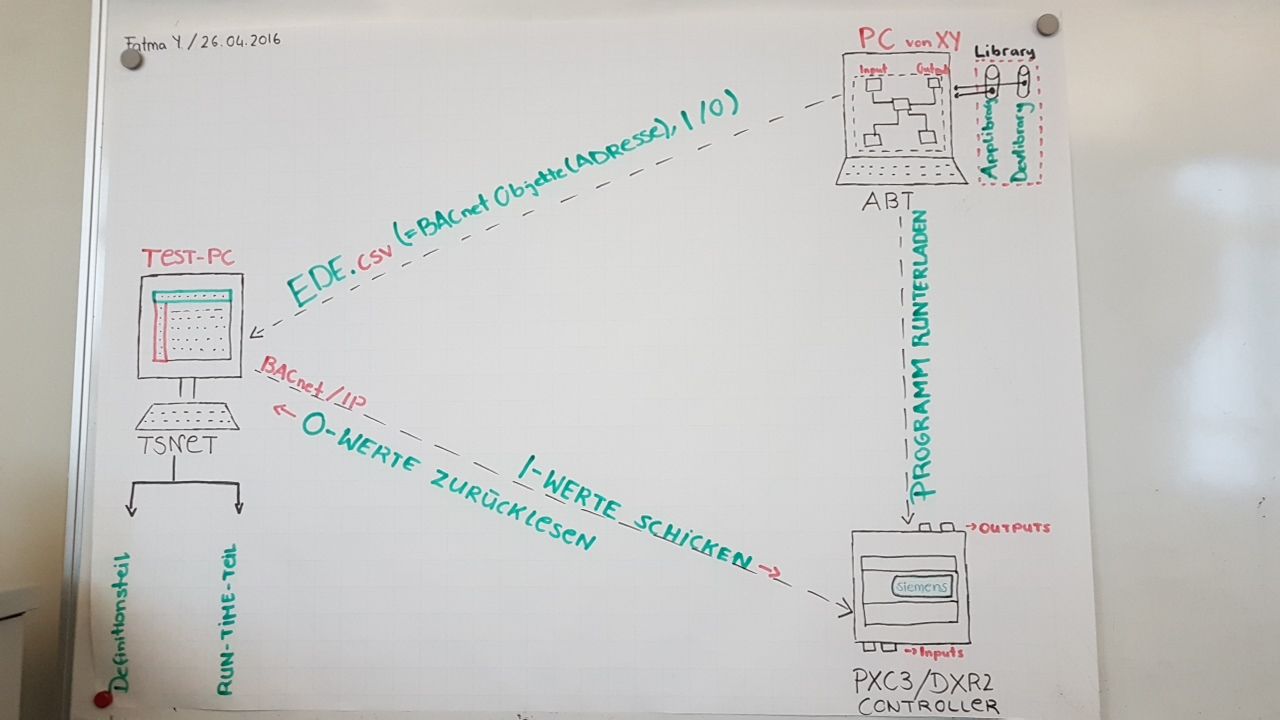 Fatma Y. / 26.04.2016
PC von XY
Library
Input Output
Applibrary
Devlibrary
ABT
EDE.csv (=BACnet Objekte (ADResse), I/O)
TEST-PC
TSNET
Definitionsteil
RUN-TIME-Teil
BACnet/IP
O-WERTE ZURÜCKLESEN
I-WERTE SCHICKEN
PROGRAMM RUNTERLADEN
OUTPUTS
siemens
Inputs
PXC3/DXR2
CONTROLLER